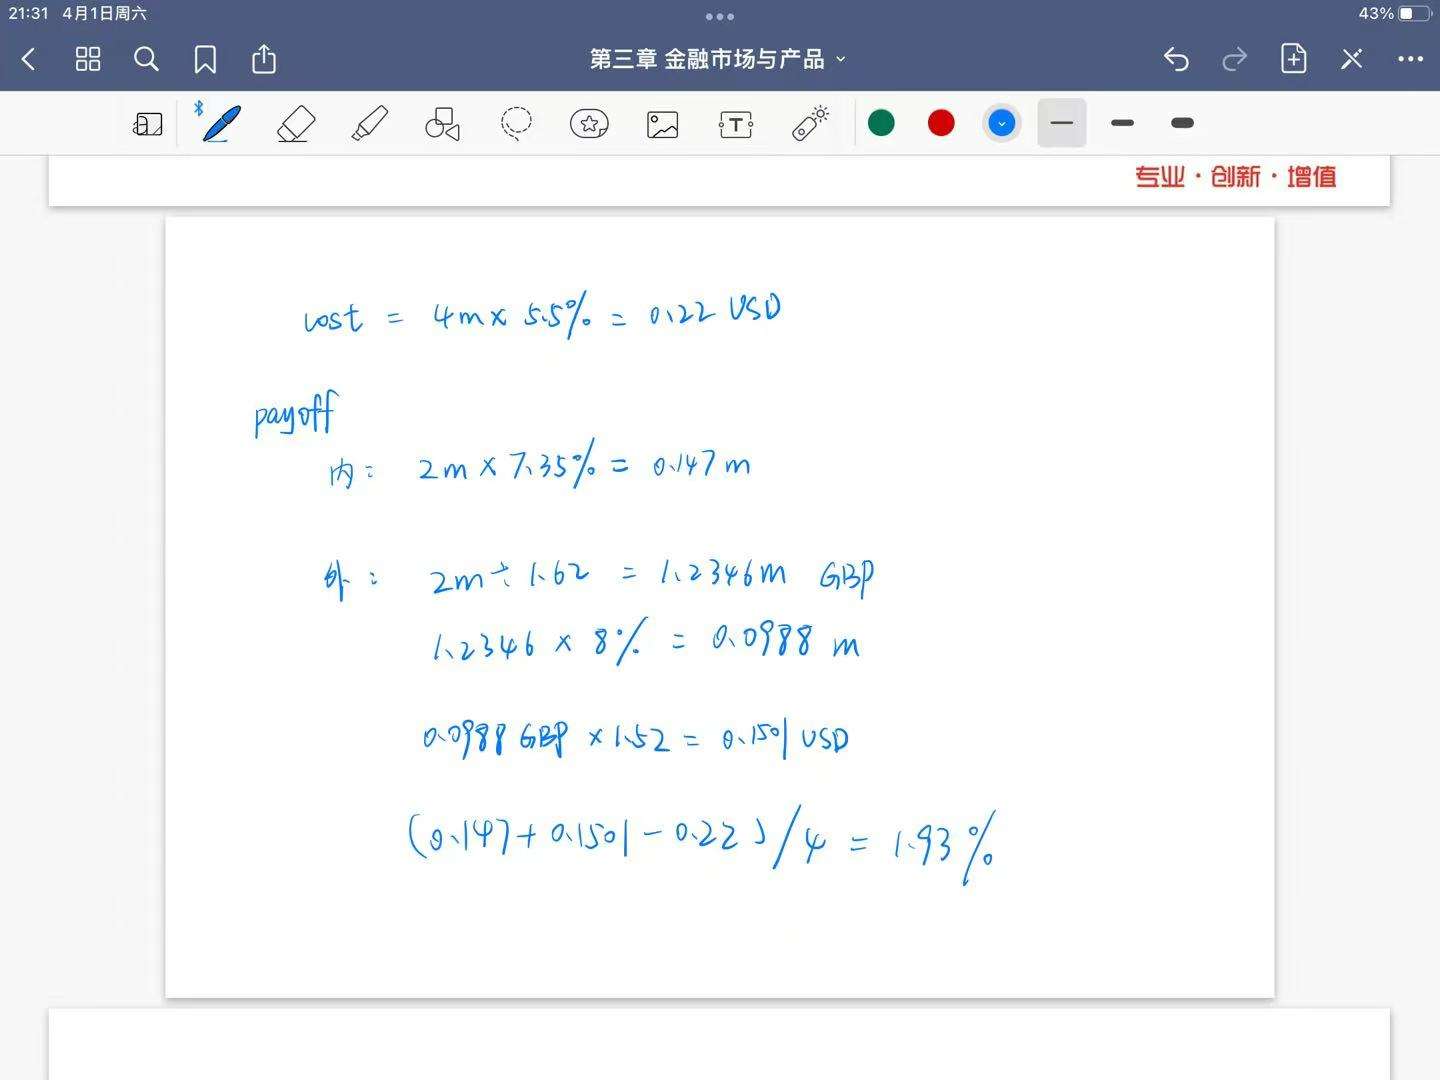 21:31 4月1日周六
43%
第三章 金融市场与产品
专业·创新·增值
cost = 4m × 5.5% = 0.22 USD
payoff
内: 2m × 7.35% = 0.147 m
外: 2m ÷ 1.62 = 1.2346m GBP
1.2346 × 8% = 0.0988 m
0.0988 GBP × 1.52 = 0.1501 USD
(0.147 + 0.1501 - 0.22) / 4 = 1.93%